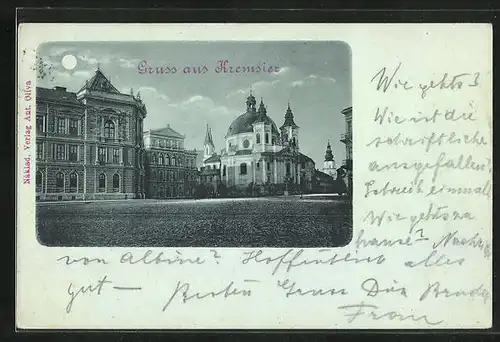 Gruss aus Kremsier
Náklad. Verlag Ant. Oliva
Wie gehts?
Wie ist die
schriftliche
ausgefallen?
Schreib einmal
Wie gehts zu
hause?
von Albine? Hoffentlich alles
gut — Besten Gruss Dein Bruder
Franz